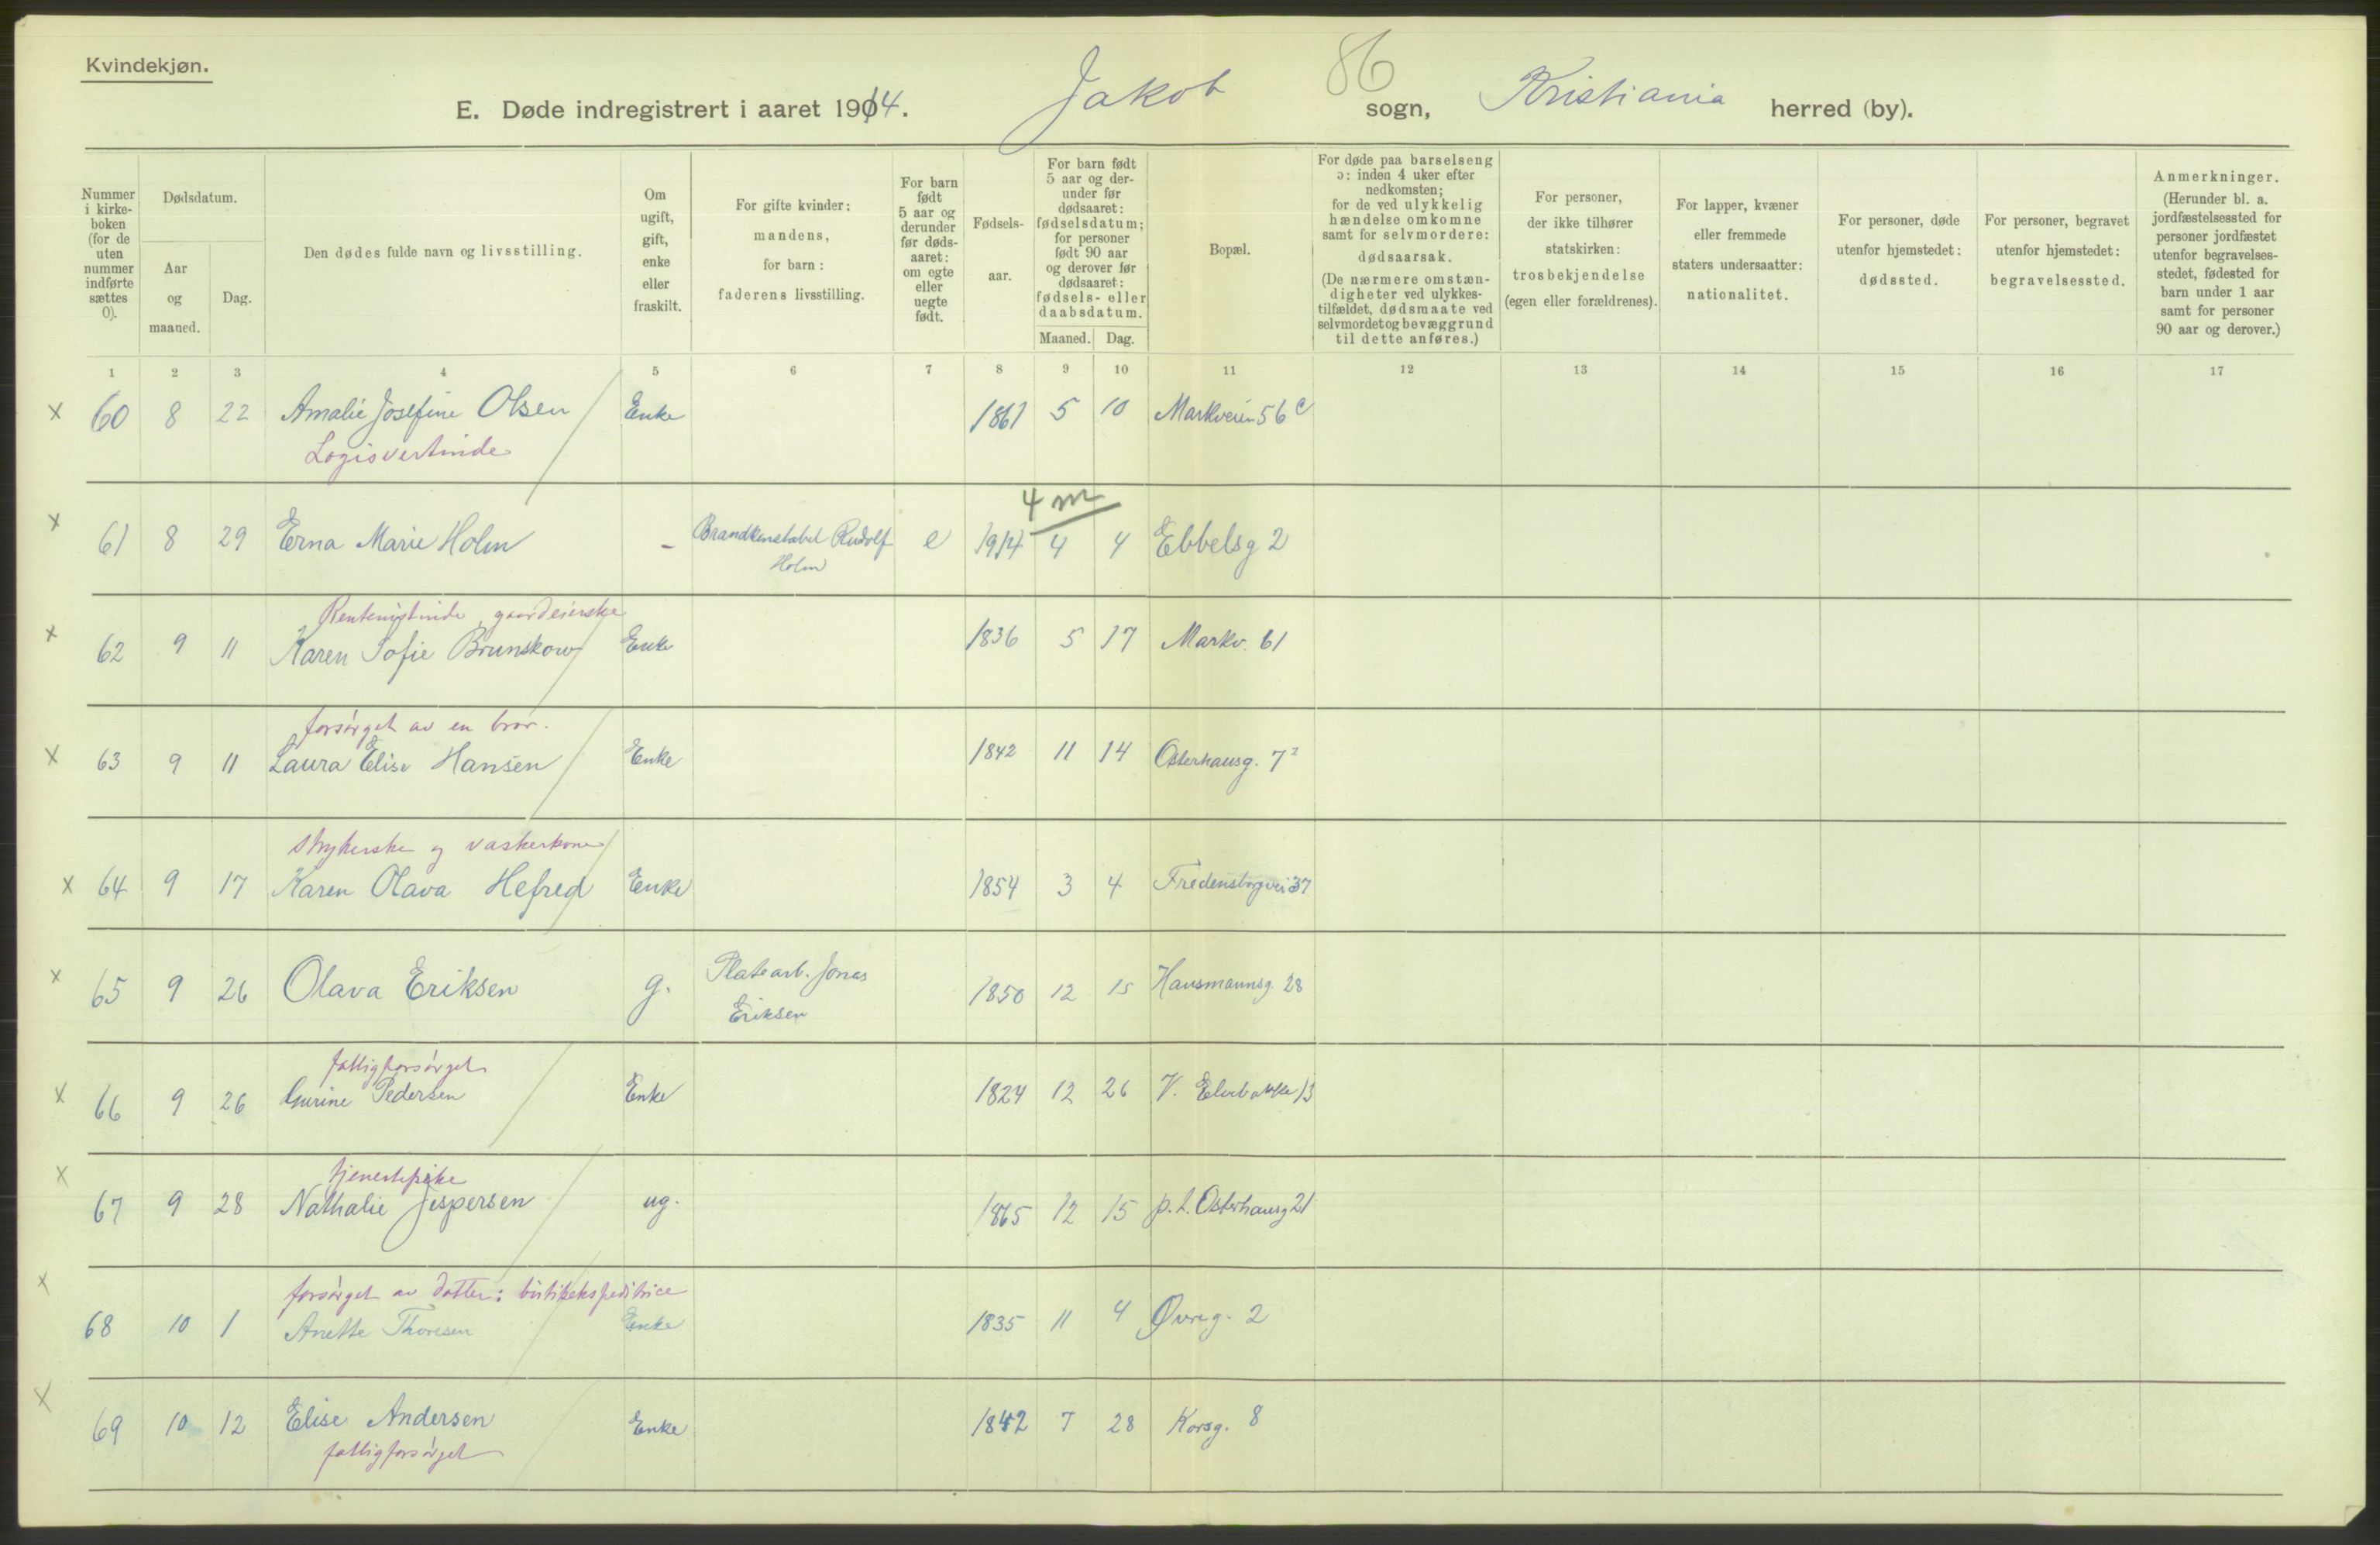 Kvindekjøn.
86
E. Døde indregistrert i aaret 1914. Jakob sogn, Kristiania herred (by).
Nummer i kirkeboken (for de uten nummer indførte sættes 0).
Dødsdatum.
Aar og maaned.
Dag.
Den dødes fulde navn og livsstilling.
Om ugift, gift, enke eller fraskilt.
For gifte kvinder: mandens, for barn: faderens livsstilling.
For barn født 5 aar og derunder før dødsaaret: om egte eller uegte født.
Fødselsaar.
For barn født 5 aar og derunder før dødsaaret: fødselsdatum; for personer født 90 aar og derover før dødsaaret: fødsels- eller daabsdatum.
Maaned. Dag.
Bopæl.
For døde paa barselseng ɔ: inden 4 uker efter nedkomsten; for de ved ulykkelig hændelse omkomne samt for selvmordere: dødsaarsak. (De nærmere omstændigheter ved ulykkestilfældet, dødsmaate ved selvmordet og bevæggrund til dette anføres.)
For personer, der ikke tilhører statskirken: trosbekjendelse (egen eller forældrenes).
For lapper, kvæner eller fremmede staters undersaatter: nationalitet.
For personer, døde utenfor hjemstedet: dødssted.
For personer, begravet utenfor hjemstedet: begravelsessted.
Anmerkninger. (Herunder bl. a. jordfæstelsessted for personer jordfæstet utenfor begravelsesstedet, fødested for barn under 1 aar samt for personer 90 aar og derover.)
1 2 3 4 5 6 7 8 9 10 11 12 13 14 15 16 17
x 60 8 22 Amalie Josefine Olsen Enke 1861 5 10 Markveien 56 c
Logisvertinde
4 m
x 61 8 29 Erna Marie Holm - Brandkonstabel Rudolf Holm e 1914 4 4 Ebbelsg 2
Rentenistinde, gaardeierske
x 62 9 11 Karen Sofie Brunskow Enke 1836 5 17 Markv. 61
forsørget av en bror.
x 63 9 11 Laura Elise Hansen Enke 1842 11 14 Osterhausg. 7 2
strykerske og vaskerkone
x 64 9 17 Karen Olava Hefred Enke 1854 3 4 Fredensborgvei 37
x 65 9 26 Olava Eriksen g. Platearb. Jonas Eriksen 1850 12 15 Hausmannsg. 28
fattigforsørget
x 66 9 26 Gurine Pedersen Enke 1824 12 26 V. Elvebakke 13
tjenestepike
x 67 9 28 Nathalie Jespersen ug. 1865 12 15 p.t. Osterhausg 21
forsørget av datter: butikekspeditrice
x 68 10 1 Anette Thoresen Enke 1835 11 4 Øvreg. 2
x 69 10 12 Elise Andersen Enke 1842 7 28 Korsg. 8
fattigforsørget